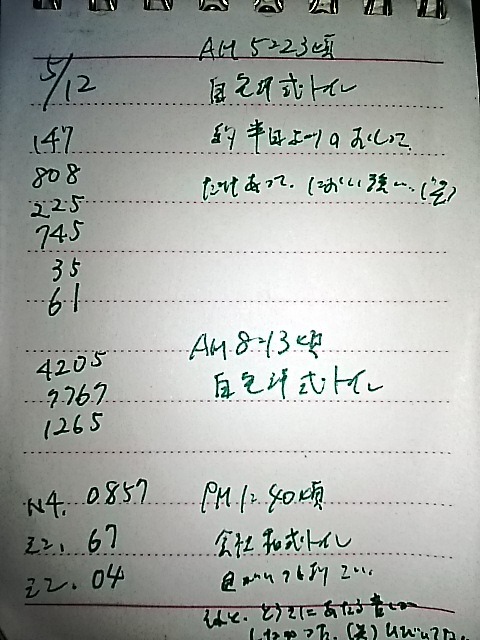 AM 5-23頃
5/12
自宅洋式トイレ
147
約半日よりのおしっこ
808
だけあって、におい強い、(笑)
225
745
35
61
AM 8-13頃
4205
自宅洋式トイレ
7767
1265
N4. 0857
PM 1-40頃
ミニ. 67
会社和式トイレ
ミニ. 04